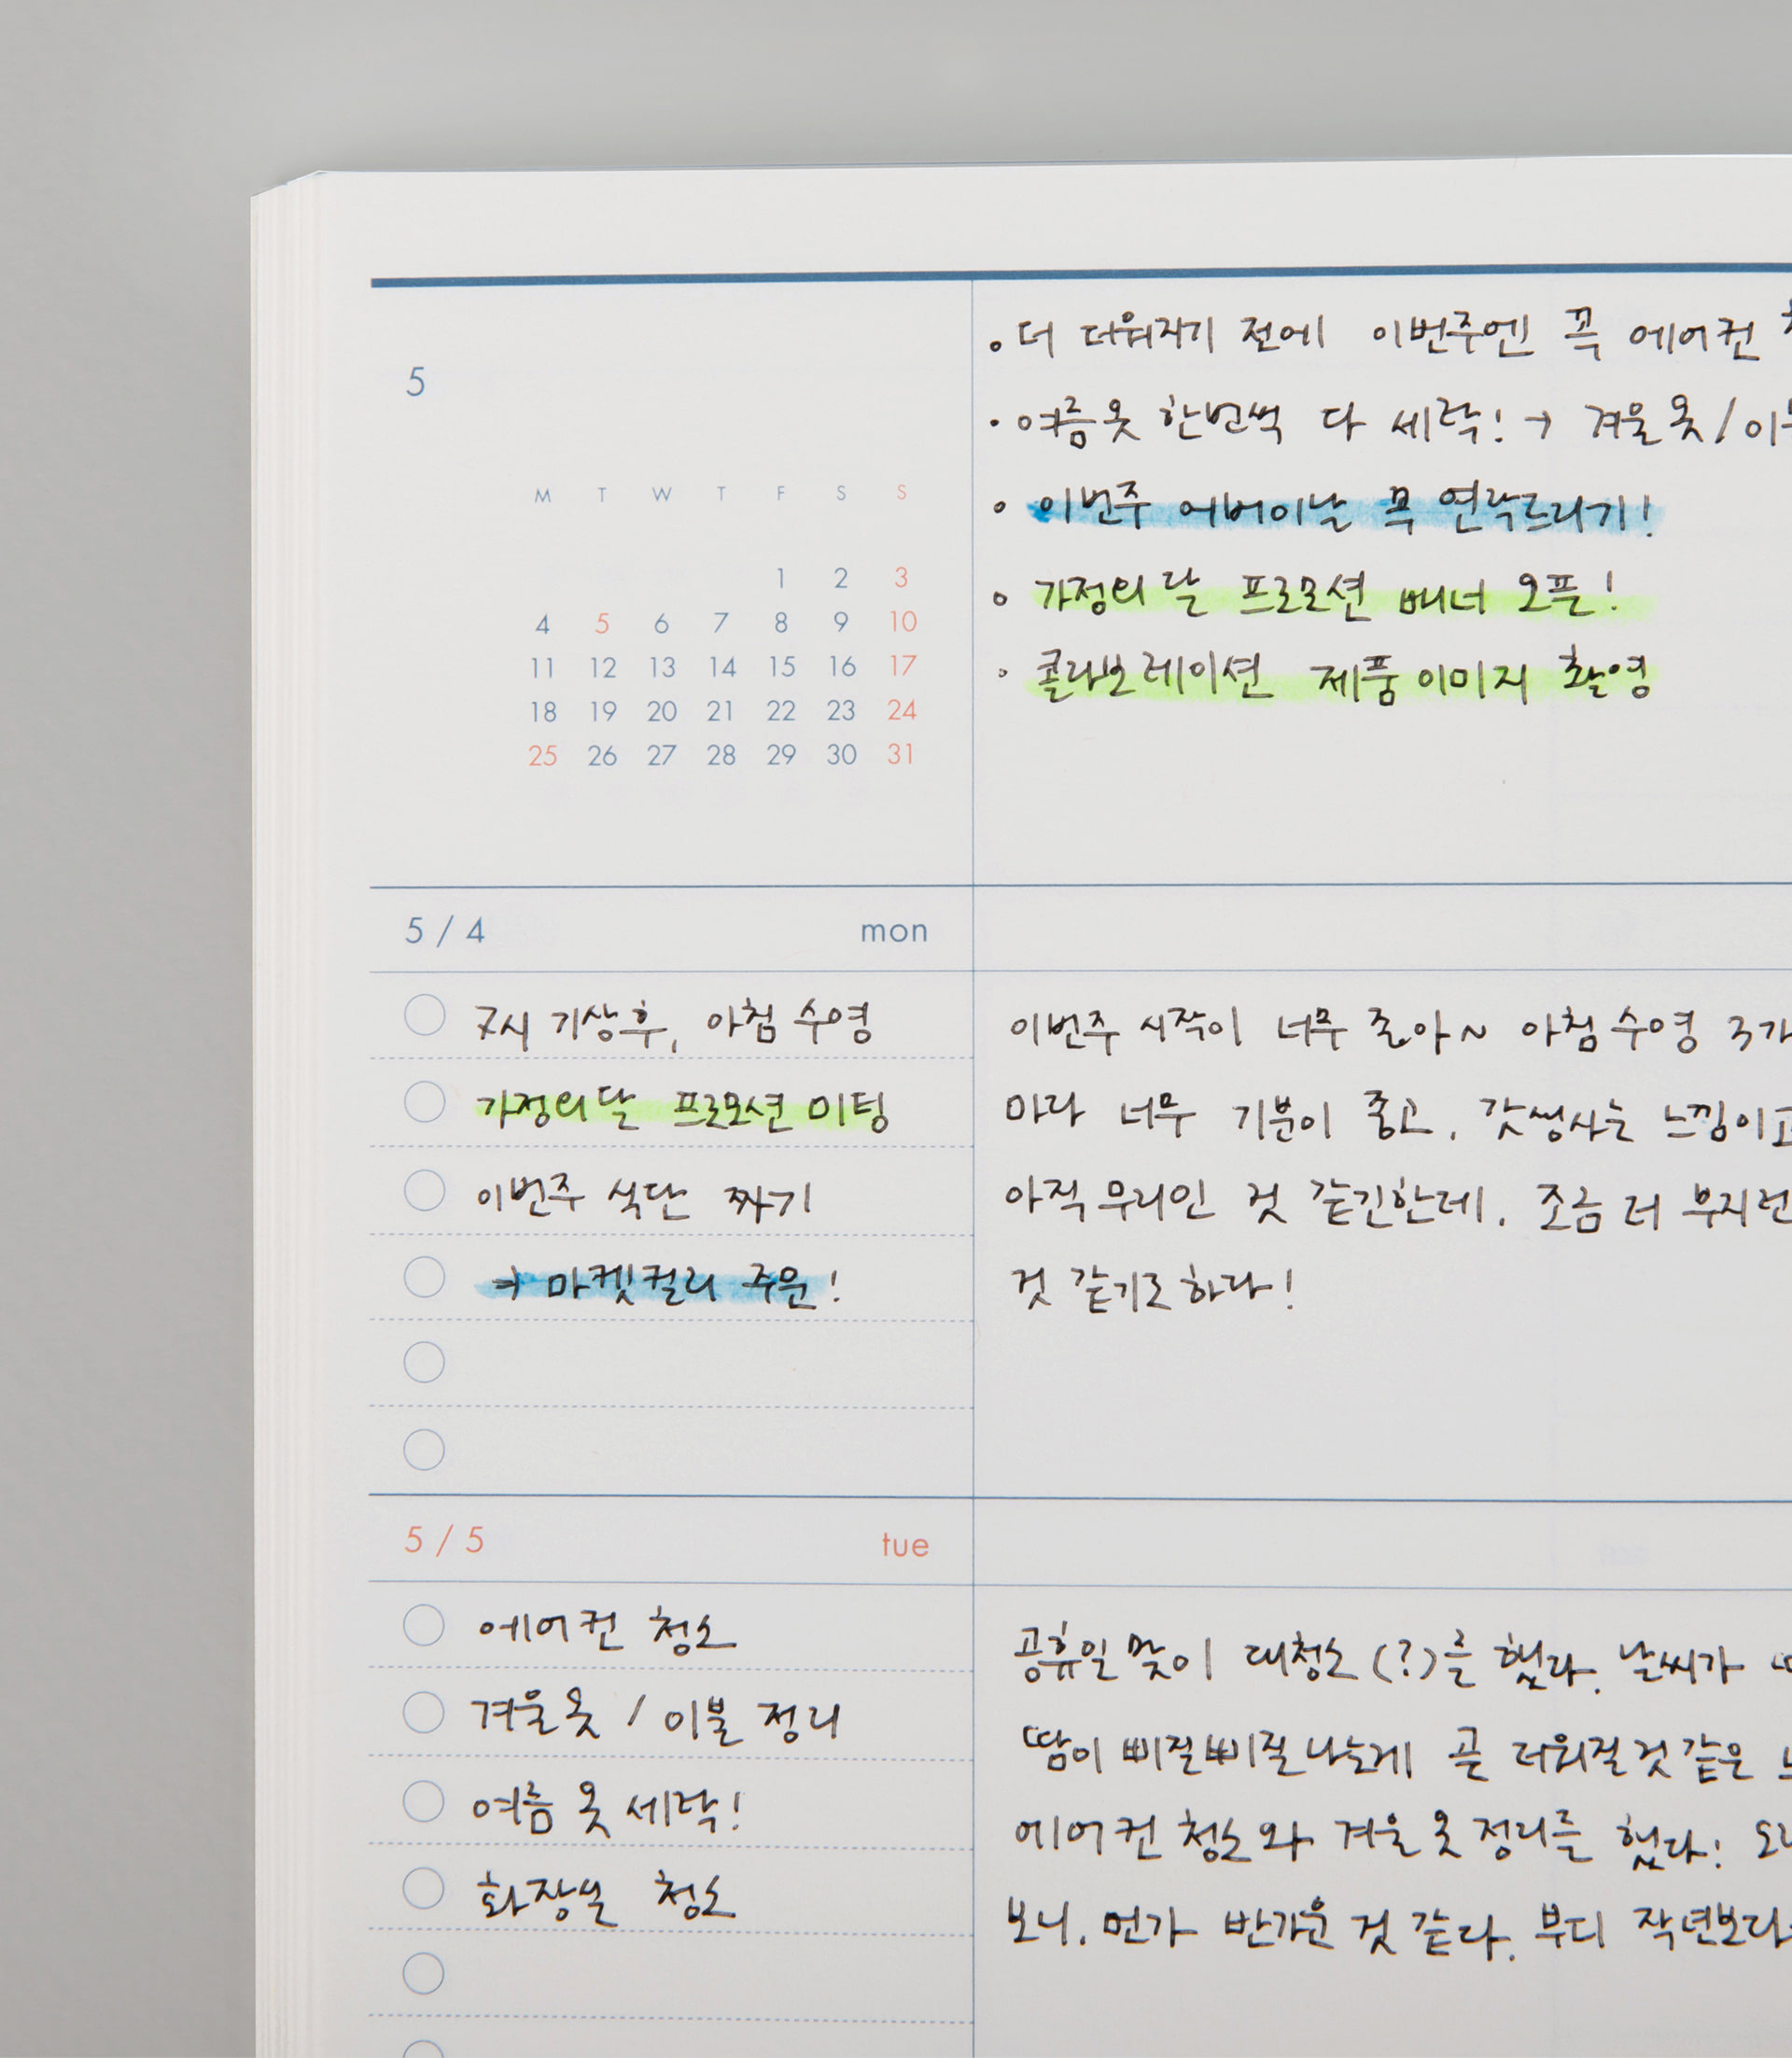 5
M T W T F S S
1 2 3
4 5 6 7 8 9 10
11 12 13 14 15 16 17
18 19 20 21 22 23 24
25 26 27 28 29 30 31
• 더 더워지기 전에 이번주엔 꼭 에어컨
• 여름옷 한번씩 다 세탁! → 겨울옷/이
• 이번주 어버이날 꼭 연락드리기!
• 가정의달 프로모션 배너 오픈!
• 콜라보레이션 제품이미지 촬영
5 / 4 mon
7시 기상후, 아침수영
가정의달 프로모션 미팅
이번주 식단 짜기
→ 마켓컬리 주문!
이번주 시작이 너무 좋아~ 아침수영
마다 너무 기분이 좋고, 갓생사는 느낌이고
아직 무리인 것 같긴한데, 조금 더 부지런
것 같기도하다!
5 / 5 tue
에어컨 청소
겨울옷 / 이불 정리
여름 옷 세탁!
화장실 청소
공휴일맞이 대청소(?)를 했다. 날씨가
땀이 삐질삐질나는게 곧 더워질것같은
에어컨청소와 겨울옷정리를 했다!
보니, 먼가 반가운 것 같다. 부디 작년보다